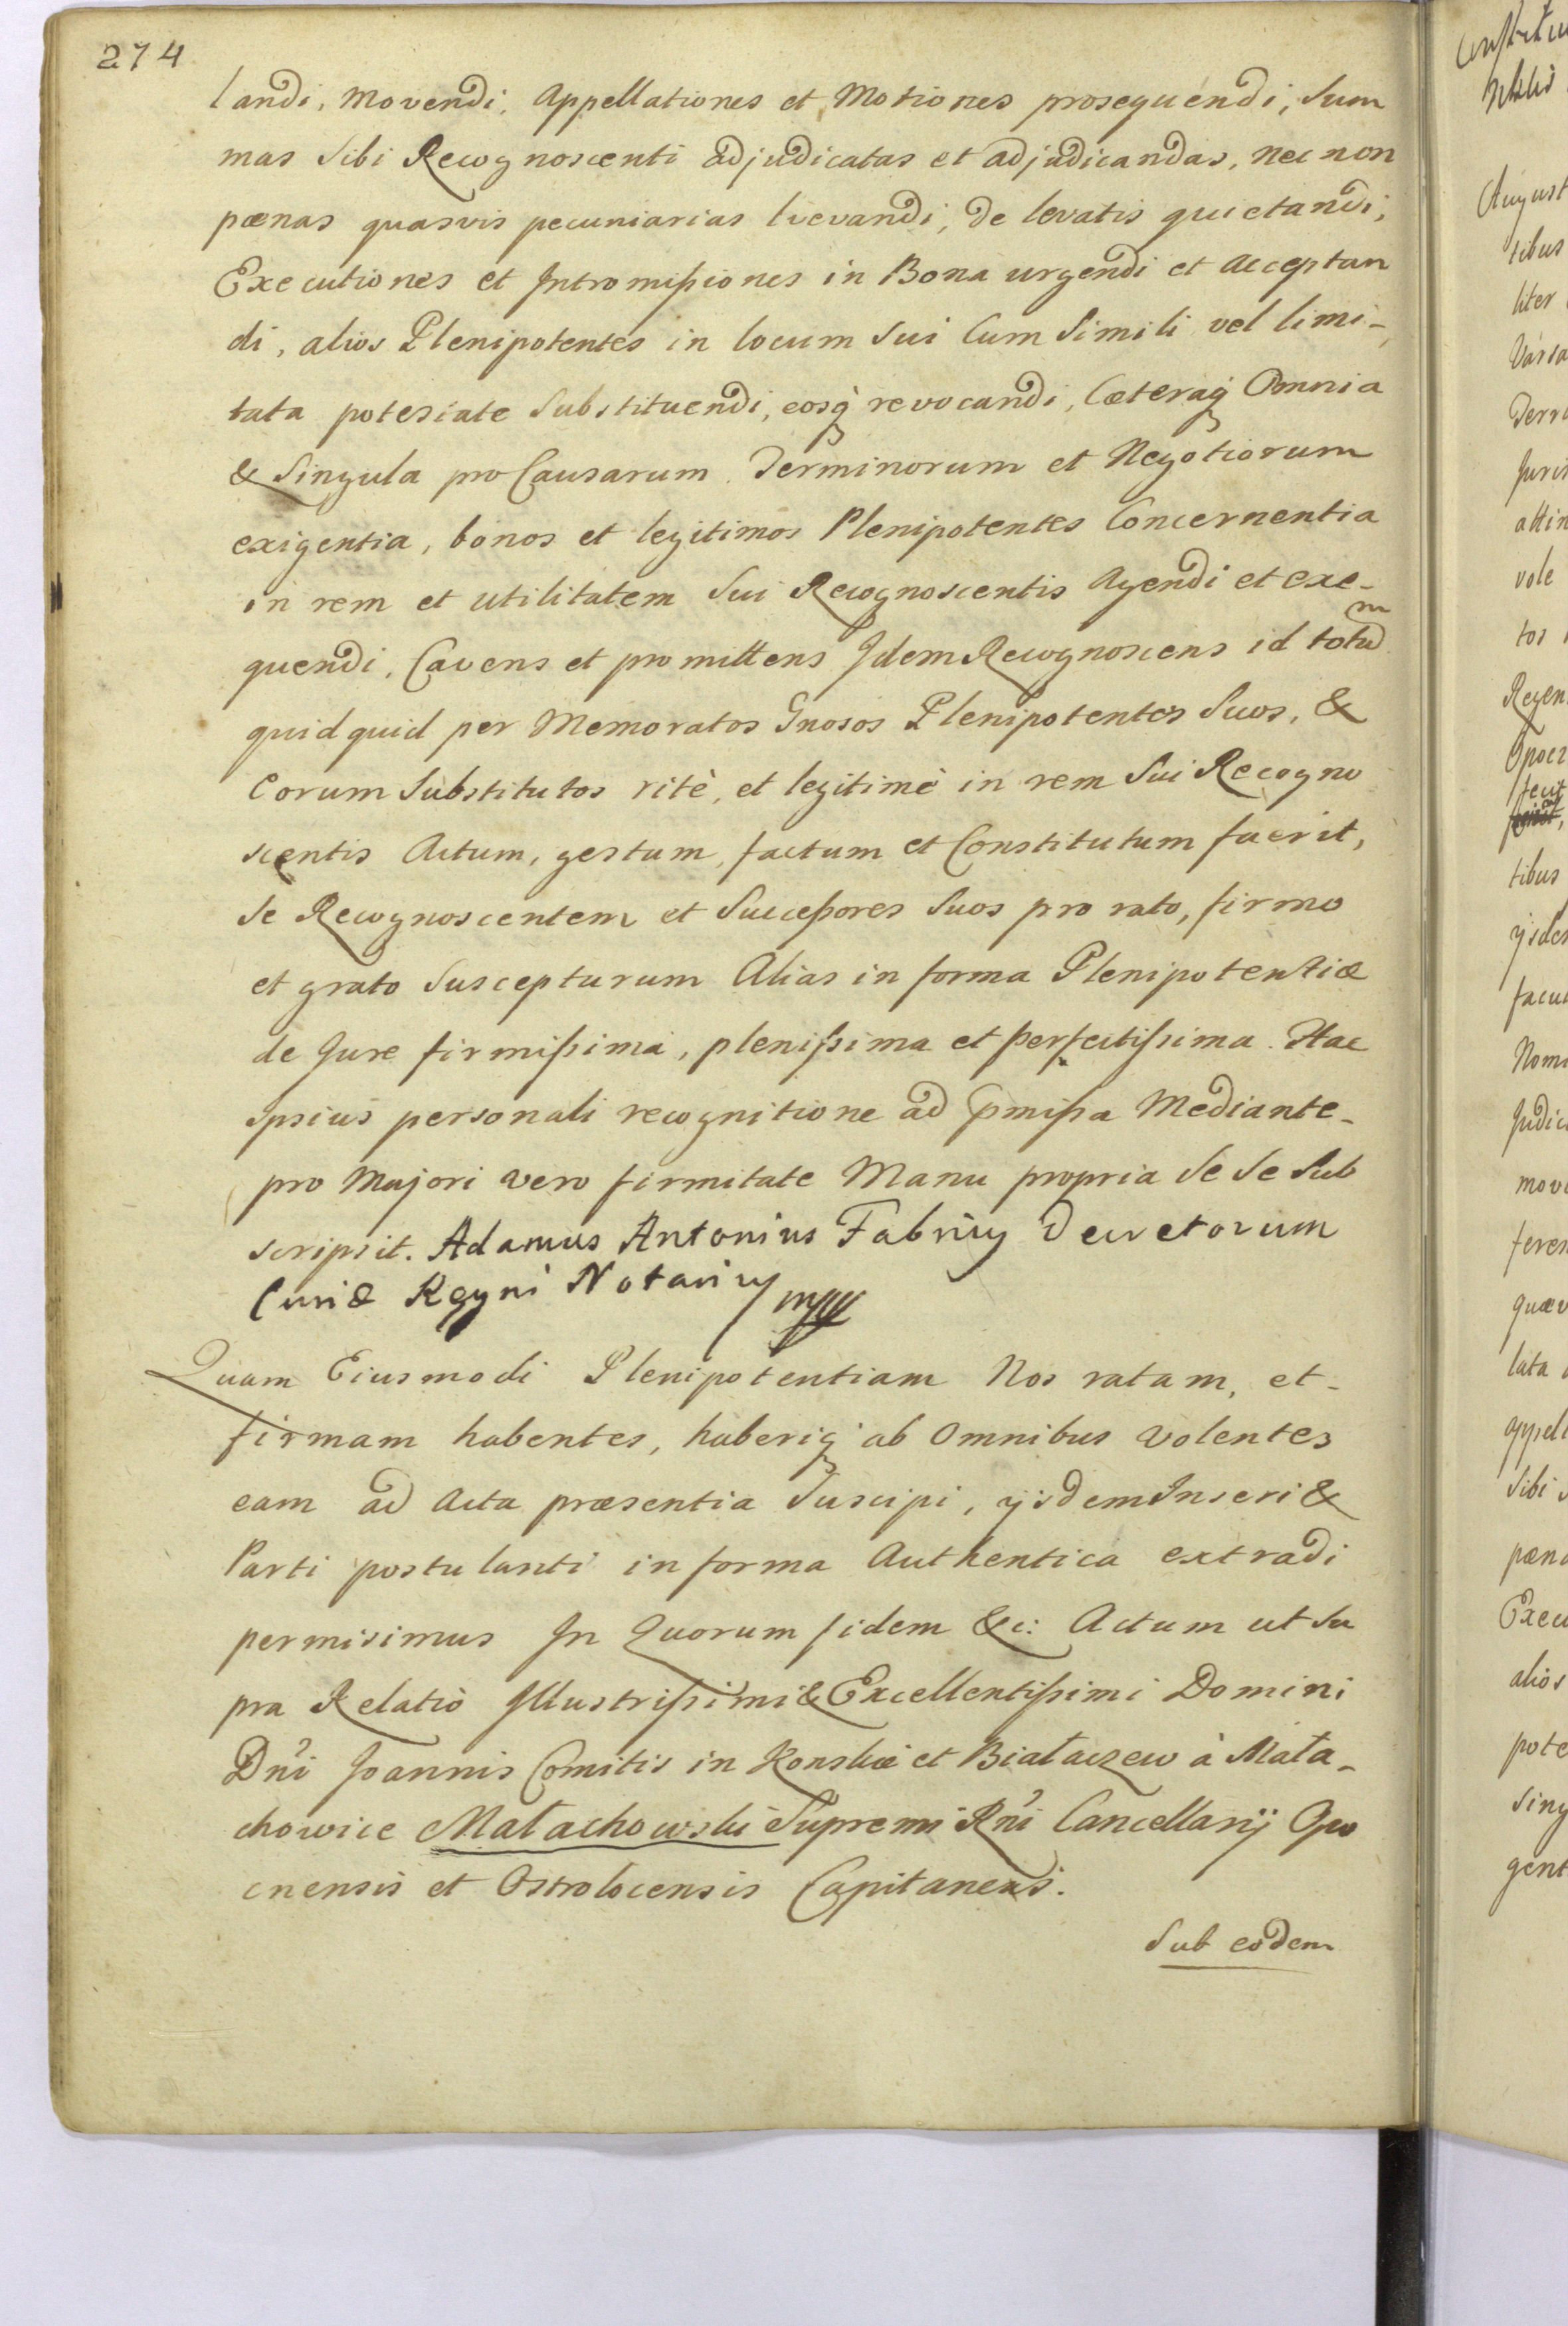 274
landi, movendi, Appellationes et Motiones prosequendi, Sum
mas Sibi Recognoscenti adjudicatas et adjudicandas, nec non
pænas quasvis pecuniarias lievandi, de levatis quietandi,
Executiones et Intromissiones in Bona urgendi et acceptan
di, alios Plenipotentes in locum Sui Cum Simili vel limi-
tata potestate Substituendi, eosq́ revocandi, Cæteraq́ Omnia
& Singula pro Causarum Terminorum et Negotiorum
exigentia, bonos et legitimos Plenipotentes Concernentia
in rem et utilitatem Sui Recognoscentis Agendi et exe-
quendi, Cavens et promittens Idem Recognoscens id totum
quidquid per Memoratos Gnosos Plenipotentes Suos, &
Eorum Substitutos ritè, et legitimè in rem Sui Recogno
scentis Actum, gestum, factum et Constitutum fuerit,
Se Recognoscentem et Successores Suos pro rato, firmo
et grato Suscepturum Alias in forma Plenipotentiæ
de Jure firmissima, plenissima et perfectissima. Hac
Ipsius personali recognitione ad pmissa Mediante-
pro Majori vero firmitate Manu propria Se Se Sub
scripsit. Adamus Antonius Fabricy Decretorum
Curiæ Regni Notariy mpp
Quam Eiusmodi Plenipotentiam Nos ratam, et-
firmam habentes, haberiq́ ab Omnibus volentes
eam ad Acta præsentia Suscipi, ijsdem Inseri &
Parti postulanti in forma Authentica extradi
permisimus In Quorum fidem &c: Actum ut Su
pra Relatio Illustrissimi & Excellentissimi Domini
Dñi Joannis Comitis in Konskie et Białaczew à Mała-
chowice Małachowski Supremi Rñi Cancellarij Opo
cnensis et Ostrolocensis Capitanens.
Sub eodem
Nobilis
August
tibus
liter
Varsa
Terr
Juris
attin
vole
tos
Regen
Opocz
tibus
ijsdem
facul
Nomi
Judic
move
feren
quæv
lata
appell
Sibi
pæna
Execu
alios
pote
Sing
gent